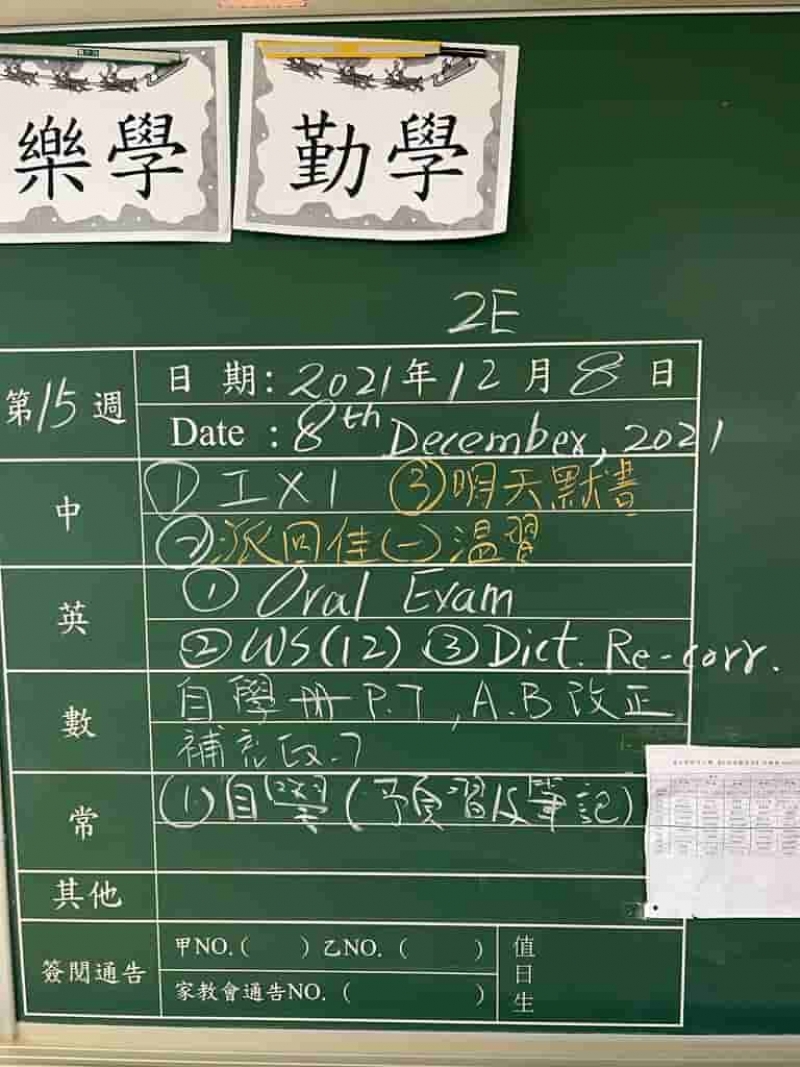 樂學
勤學
2E
第15週
日 期：2021年12月8日
Date : 8th December, 2021
中
① 工X1 ③明天默書
②派回佳(一)温習
英
① Oral Exam
② WS(12) ③ Dict. Re-corr.
數
自學冊P.7, A.B改正
補充P.7
常
①自學(預習及筆記)
其他
簽閱通告
甲NO.( ) 乙NO. ( )
家教會通告NO. ( )
值日生